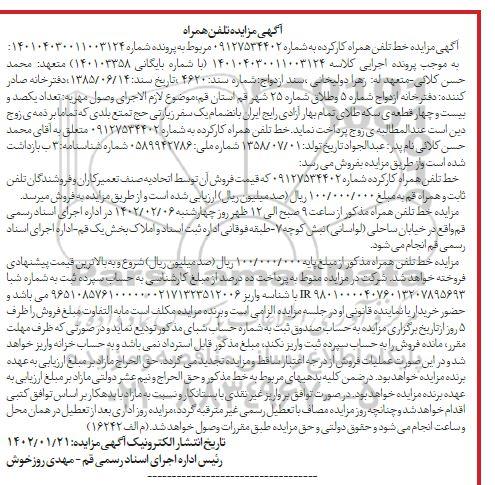 آگهی مزایده تلفن همراه
آگهی مزایده خط تلفن همراه کارکرده به شماره ۰۹۱۲۷۵۳۴۴۰۲ مربوط به پرونده شماره ۱۴۰۱۰۴۰۳۰۰۱۱۰۰۳۱۲۴ :
به موجب پرونده اجرایی کلاسه ۱۴۰۱۰۴۰۳۰۰۱۱۰۰۳۱۲۴ (با شماره بایگانی ۱۴۰۱۰۳۳۵۸) متعهد: محمد
حسن کلائی -متعهد له: زهرا دولیخانی ،سند ازدواج:شماره سند: ۴۶۲۰ ،تاریخ سند: ۱۳۸۵/۰۶/۱۴ ،دفترخانه صادر
کننده: دفترخانه ازدواج شماره ۵ وطلاق شماره ۲۵ شهر قم استان قم،موضوع لازم الاجرای وصول مهریه: تعداد یکصد و
بیست و چهار قطعه ی سکه طلای تمام بهار آزادی رایج ایران بانضمام یک سفر زیارتی حج تمتع بلدی که تماما بر ذمه ی زوج
دین است عندالمطالبه ی زوج پرداخت نماید.خط تلفن همراه کارکرده به شماره ۰۹۱۲۷۵۳۴۴۰۲ متعلق به آقای محمد
حسن کلائی نام پدر: عبدالجواد تاریخ تولد: ۱۳۵۸/۰۷/۰۱ شماره ملی: ۰۵۸۹۹۴۲۷۸۶ شماره شناسنامه: ۳ ب بازداشت
شده است و از طریق مزایده بفروش می رسد:
خط تلفن همراه کارکرده شماره ۰۹۱۲۷۵۳۴۴۰۲ که قیمت فروش آن توسط اتحادیه صنف تعمیرکاران و فروشندگان تلفن
ثابت و همراه قم به مبلغ ۱۰۰/۰۰۰/۰۰۰ ریال (صد میلیون ریال) ارزیابی شده است و از طریق مزایده به فروش میرسد.
مزایده خط تلفن همراه مذکور از ساعت ۹ صبح الی ۱۲ ظهر روز چهارشنبه ۱۴۰۲/۰۲/۰۶ در اداره اجرای اسناد رسمی
قم واقع در خیابان ساحلی (لواسانی) نبش کوچه ۷-طبقه فوقانی اداره ثبت اسناد و املاک بخش یک قم-اداره اجرای اسناد
رسمی قم انجام می شود.
مزایده خط تلفن همراه مذکور از مبلغ پایه ۱۰۰/۰۰۰/۰۰۰ ریال (صد میلیون ریال) شروع و به بالاترین قیمت پیشنهادی
فروخته خواهد شد. شرکت در مزایده منوط به پرداخت ده درصد از مبلغ کارشناسی به حساب سپرده ثبت به شماره شبا
IR ۹۸۰۱۰۰۰۰۴۰۷۶۰۱۳۲۰۷۸۹۵۶۹۳ با شناسه واریز ۹۶۵۱۰۸۵۷۶۱۰۰۰۰۰۰۰۲۱۷۱۳۲۳۵۱۲۰۰۶ می باشد و
حضور خریدار یا نماینده قانونی او در جلسه مزایده الزامی است و برنده مزایده مکلف است مابه التفاوت مبلغ فروش را ظرف
۵ روز از تاریخ برگزاری مزایده به حساب صندوق ثبت به شماره حساب شبای مذکور تودیع نماید و در صورتی که ظرف مهلت
مقرر، مانده فروش را به حساب سپرده ثبت واریز نکند، مبلغ مذکور قابل استرداد نمی باشد و به حساب خزانه واریز خواهد
شد و در این صورت عملیات فروش از درجه اعتبار ساقط و مزایده تجدید می گردد؛ حق الحراج مازاد بر مبلغ ارزیابی به عهده
برنده مزایده خواهد بود. در ضمن کلیه بدهیهای مربوط به خط مذکور و حق الحراج و نیم عشر دولتی مازاد بر مبلغ ارزیابی به
عهده برنده مزایده خواهد بود. در صورت توافق بر واریز غیر نقدی با بستانکار و نسبت به مازاد با بدهکار بر اساس توافق کتبی
اقدام خواهد شد و چنانچه روز مزایده مصادف با تعطیل رسمی غیر مترقبه گردد، مزایده روز اداری بعد از تعطیل در همان محل
و ساعت انجام می شود و حقوق دولتی و حق مزایده طبق مقررات وصول خواهد شد. (م الف ۱۶۲۴۲)
تاریخ انتشار الکترونیک آگهی مزایده: ۱۴۰۲/۰۱/۲۱
رئیس اداره اجرای اسناد رسمی قم - مهدی روزخوش